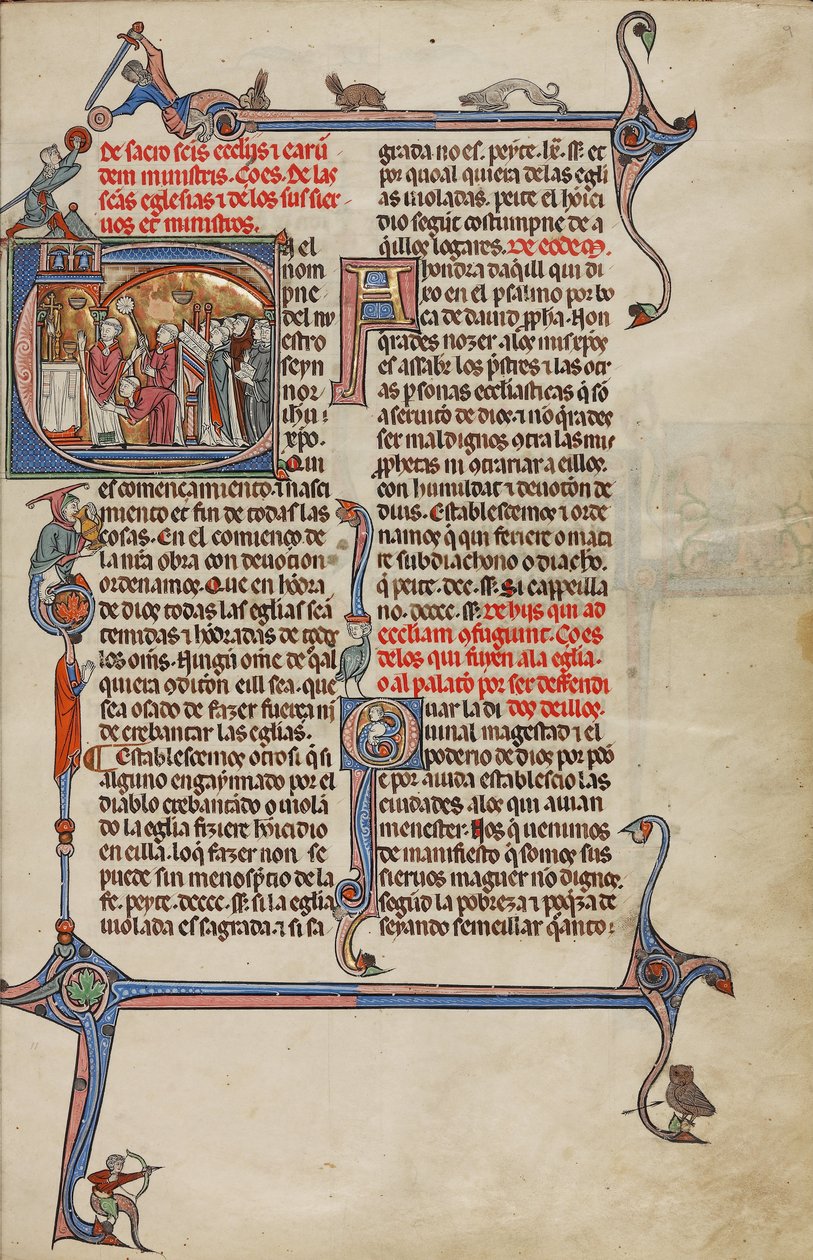 De sacro sc̄is ecclijs ⁊ earū
dem ministris. Co es. De las
sc̄as eglesias ⁊ de los sus sier
uos et ministros.
En el
nom
pne
del nu
estro
seyn
nor
ih̄u
xp̄o.
Qui
es començamiento. ⁊ nasci
miento et fin de todas las
cosas. En el comienço de
la nr̄a obra con deuocion
ordenamos. Que en hōdra
de dios todas las eglias seā
temidas ⁊ hōdradas de todos
los om̄s. Ningū om̄e de q̄al
quiera ꝯdiciōn eill sea. que
sea osado de fazer fuerça ni
de crebantar las eglias.
Establescemos otrosi q̄ si
alguno engaynnado por el
diablo crebantādo o uiolā
do la eglia fiziere hōicidio
en eilla. lo q̄ fazer non se
puede sin menosp̄cio de la
fe. peyte. dcccc. ss̄. si la eglia
uiolada es sagrada. ⁊ si sa
grada no es. peyte. ss̄. et
por quoal quiera de las egli
as uioladas. peite el hōici
dio segūt costumpne de a
q̄illos logares. De eodem.
A hondra daq̄ill qui di
xo en el psalmo por bo
ca de dauid ꝓph̄a. Non
q̄rades nozer a los mis xp̄os
es assabr̄ los p̄stres ⁊ las otr
as ꝑsonas eccl̄iasticas q̄ sō
a seruicio de dios. ⁊ nō q̄rades
ser malignos ꝯtra las mis
ꝓphetas ni ꝯtrariar a eillos.
con humildat ⁊ deuotiōn de
dius. Establescemos ⁊ orde
namos q̄ qui feriere o mata
re subdiachono o diacho.
q̄ peite. dcc. ss̄. Si cappeilla
no. dcccc. ss̄. De hijs qui ad
eccliam ꝯfugiunt. Co es
de los qui fuyen a la eglia.
o al palacio por ser deffendi
dos de illos.
Onar la di
uinal magestad ⁊ el
poderio de dios por
e por aiuda establescio las
ciudades a los qui auian
menester. Nos q̄ uenimos
de manifiesto q̄ somos sus
sieruos maguer nō dignos.
segūd la pobreza ⁊ poq̄za de
seyando semeillar q̄anto
9